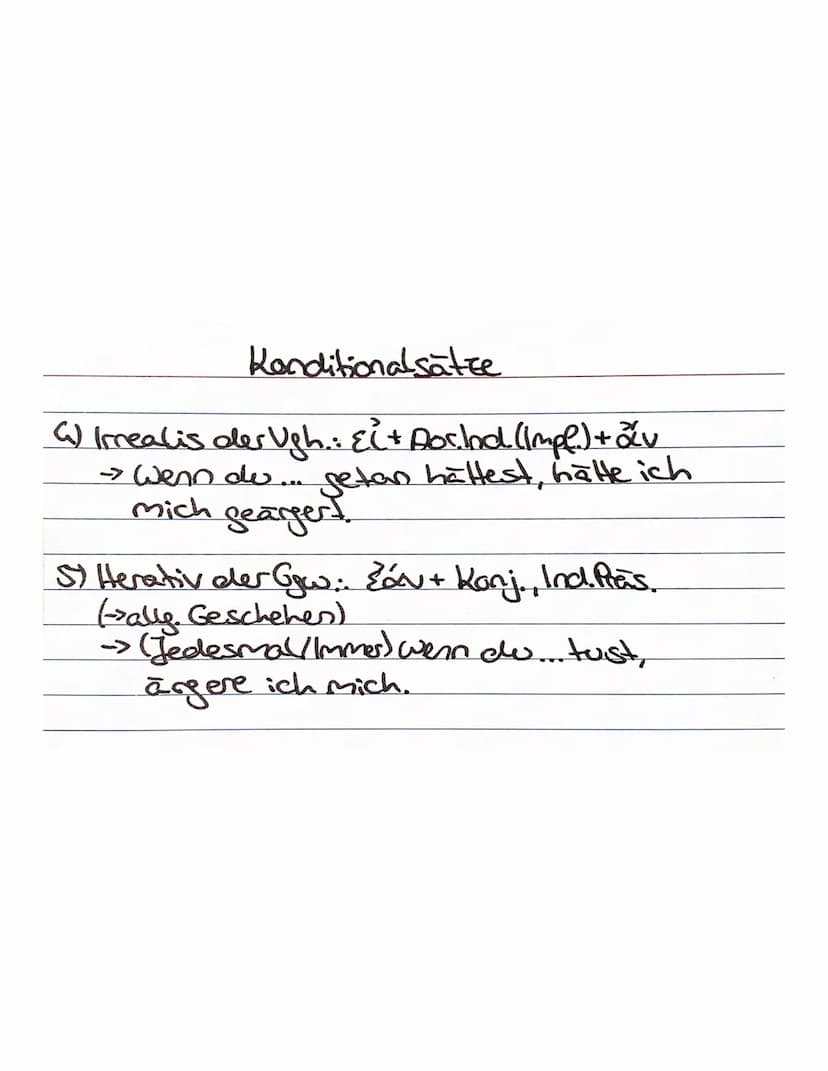 Konditionalsätze
4) Irrealis der Vgh.: εἰ + Aor.Ind.(Impf.) + ἄν
→ Wenn du ... getan hättest, hätte ich
mich geärgert.
5) Iterativ der Ggw.: ἐάν + Konj., Ind.Präs.
(→allg. Geschehen)
→ (Jedesmal/Immer) wenn du ... tust,
ärgere ich mich.